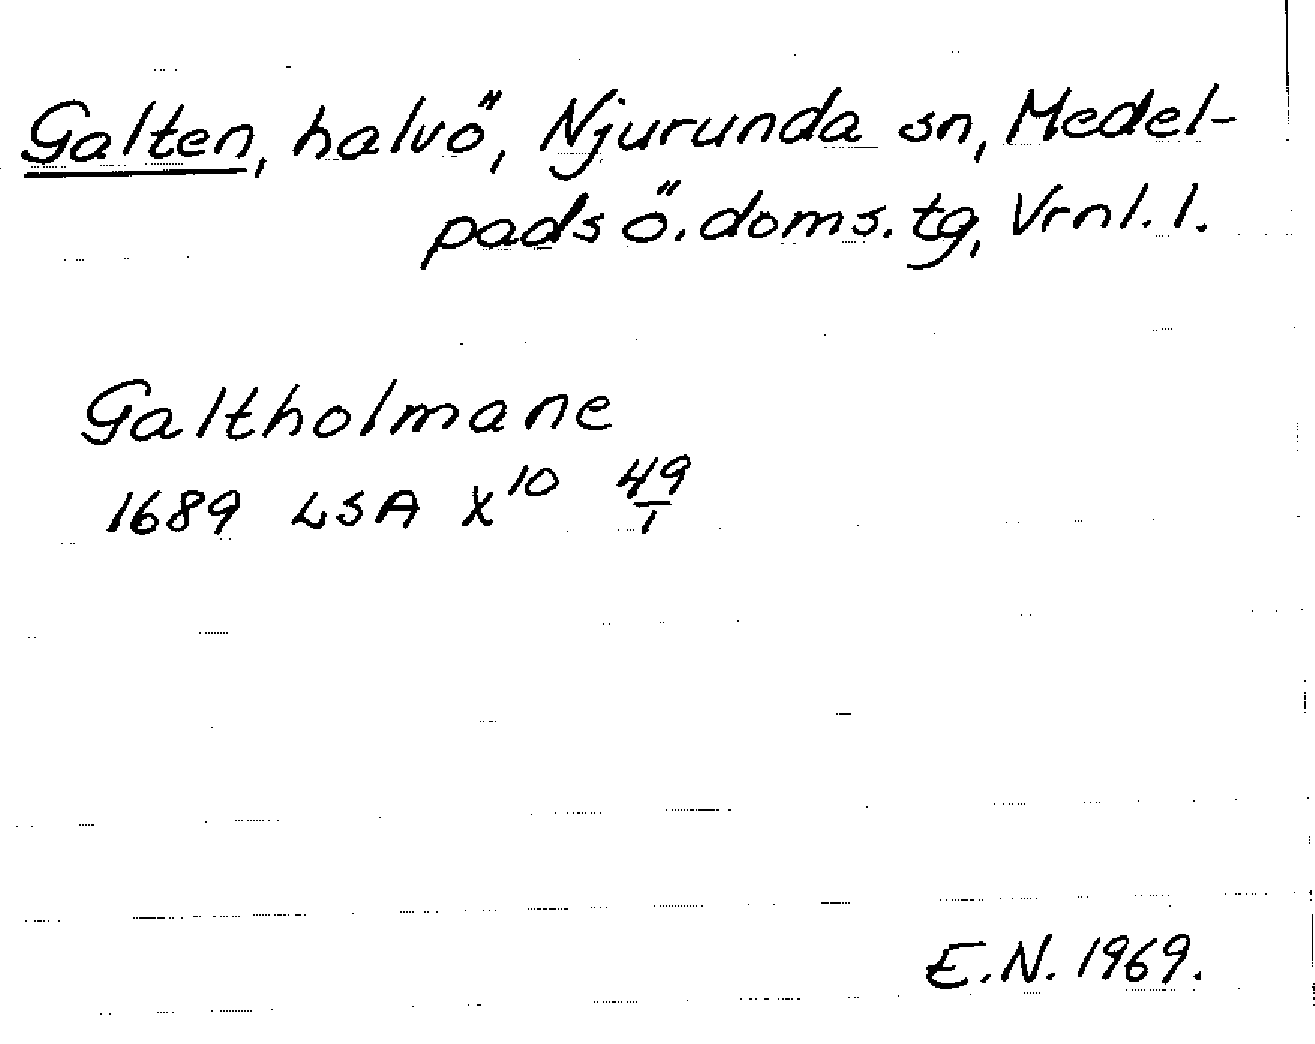 Galten, halvö, Njurunda sn, Medel-
pads ö. doms. tg, Vrnl. l.
Galtholmane
1689 LSA X¹⁰ 49/1
E.N. 1969.